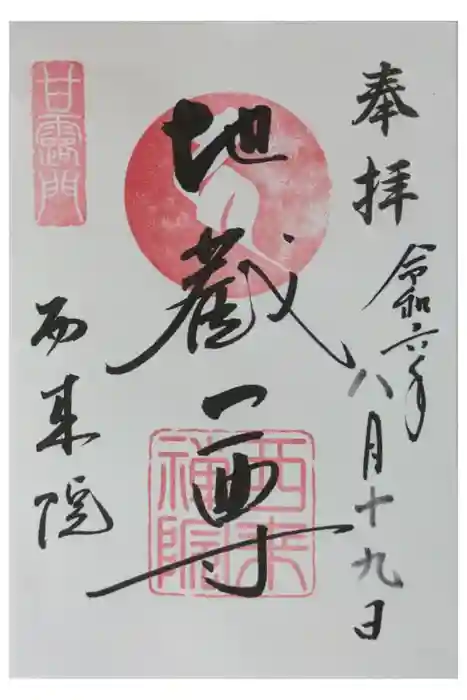 奉拝
令和六年
八月十九日
地蔵尊
甘露門
西来院
西来禅院